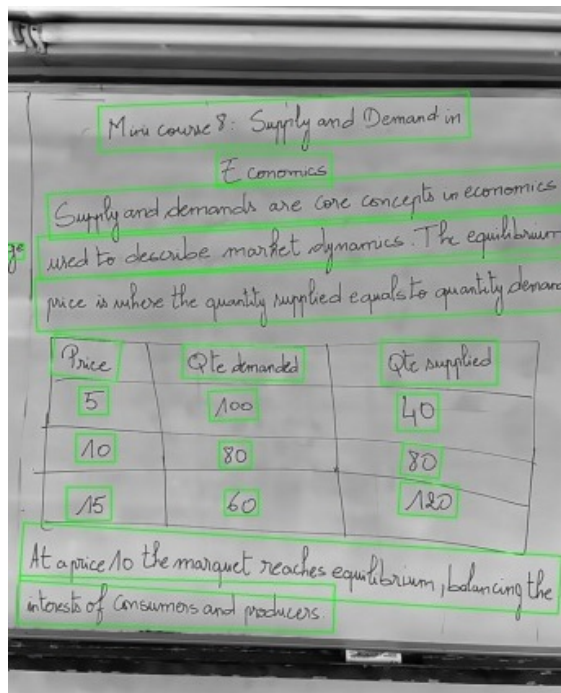 Mini course 8: Supply and Demand in
Economics
Supply and demands are core concepts in economics
used to describe market dynamics. The equilibrium
price is where the quantity supplied equals to quantity deman
Price Qte demanded Qte supplied
5 100 40
10 80 80
15 60 120
At a price 10 the marquet reaches equilibrium, balancing the
interests of consumers and producers.